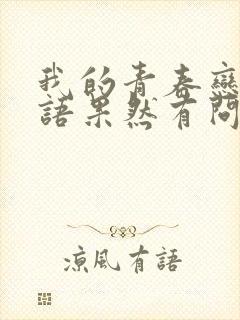 我的青春戀
語果然有問
涼風有語